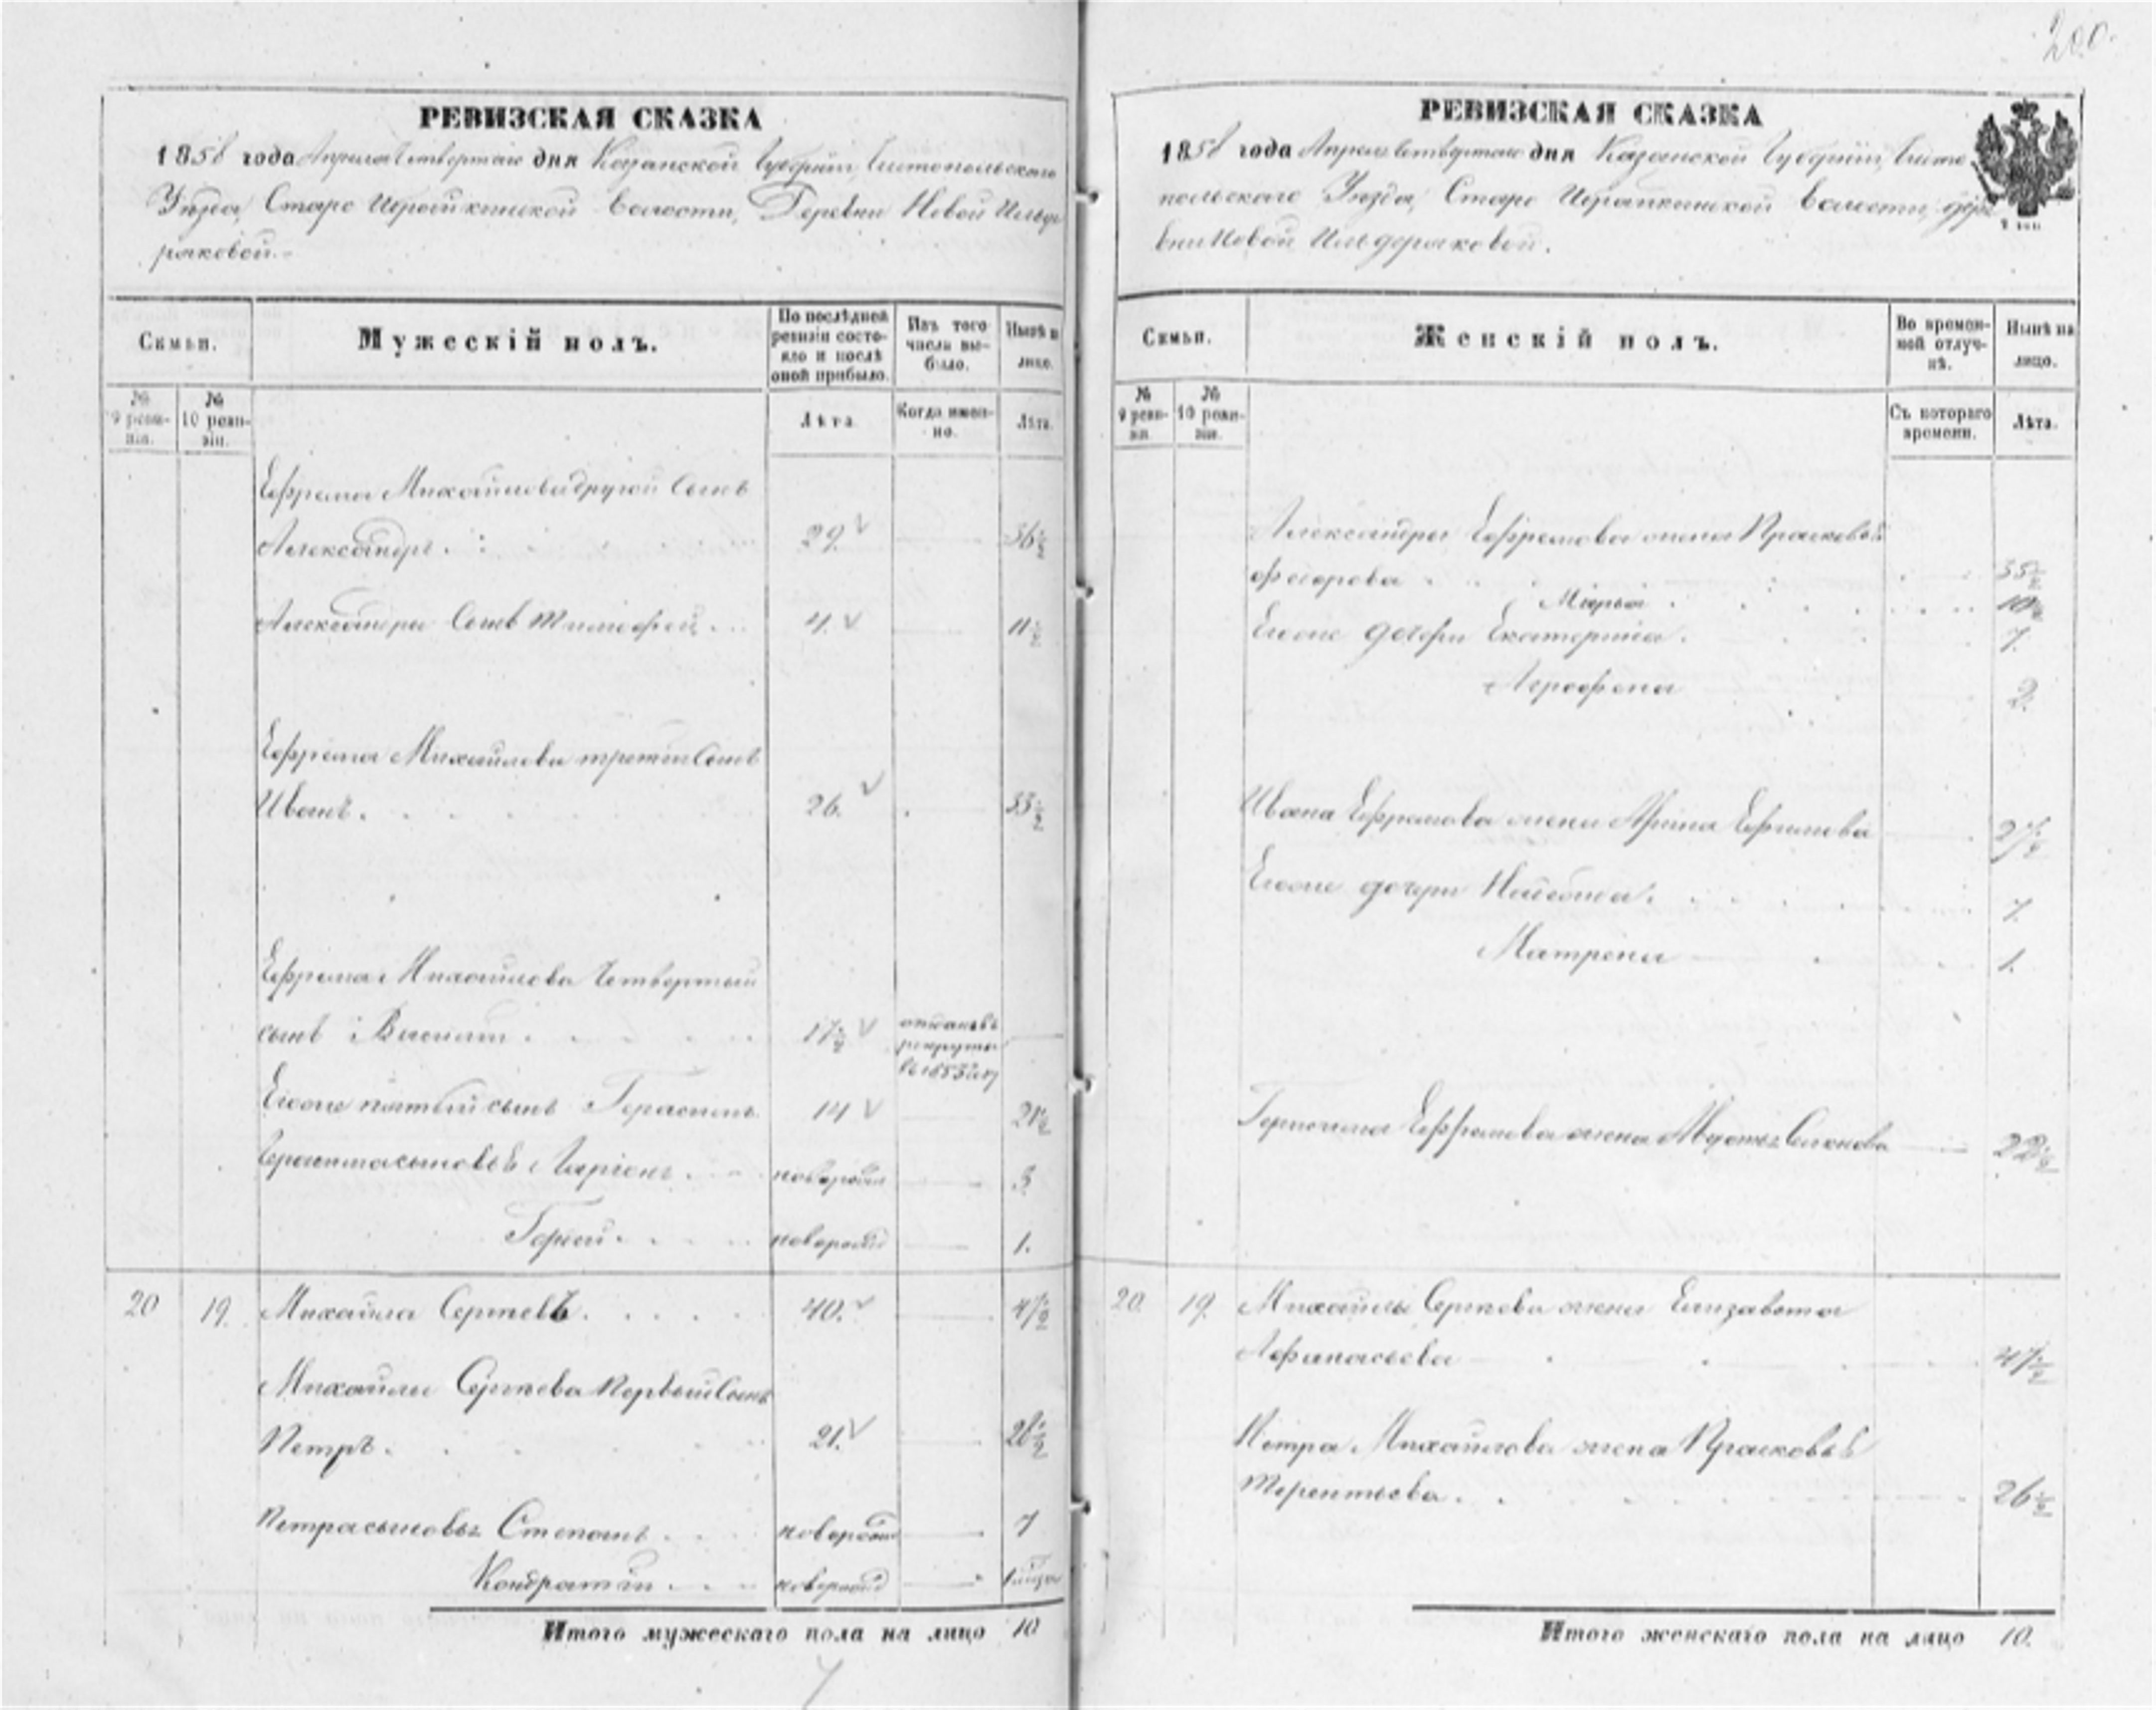 200.
РЕВИЗСКАЯ СКАЗКА
1858 года Апреля Четвертаго дня Казанской Губерніи, Чистопольскаго
Уѣзда, Старо Волости, Деревни Новой Ильде
ряковой.
Семьи.
Мужескій полъ.
По послѣдней ревизіи состояло и послѣ оной прибыло.
Изъ того числа выбыло.
Нынѣ на лицо.
№ 9 ревизіи.
№ 10 ревизіи.
Лѣта.
Когда именно.
Лѣта.
Ефрема Михайлова другой Сынъ
Александръ. 29. 36½
Александра Сынъ Тимофей. 4. 11½
Ефрема Михайлова третій Сынъ
Иванъ. 26. 33½
Ефрема Михайлова Четвертый
сынъ Василій. 17½ отданъ въ рекруты въ 1853 году
Егоже пятый сынъ Герасимъ 14 21½
Герасима сыновья Ларіонъ. новорожд 3
Гордей. новорожд 1.
20 19. Михайла Сергеевъ. 40. 47½
Михайлы Сергеева Первый Сынъ
Петръ. 21. 28½
Петра сыновья Степанъ. новорожд 7
Кондратій. новорожд
Итого мужескаго пола на лицо 10
РЕВИЗСКАЯ СКАЗКА
1858 года Апреля Четвертаго дня Казанской Губерніи, Чисто
польскаго Уѣзда, Старо Волости, дере
вни Новой Ильдеряковой.
Семьи.
Женскій полъ.
Во временной отлучкѣ.
Нынѣ на лицо.
№ 9 ревизіи.
№ 10 ревизіи.
Съ котораго времени.
Лѣта.
Александра Ефремова жена Прасковья
Федорова 35½
Марья. 10½
Егоже дочери Екатерина. 7.
Агрофена 2.
Ивана Ефремова жена Арина Ефимова 27½
Егоже дочери 7.
Матрена 1.
Герасима Ефремова жена Авдотья Семенова 22½
20. 19. Михайлы Сергеева жена Елизавета
Афанасьева 47½
Петра Михайлова жена Прасковья
Терентьева. 26½
Итого женскаго пола на лицо 10.